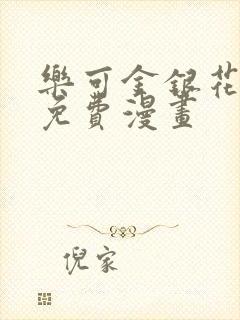 樂可金銀花
免費漫畫
倪家